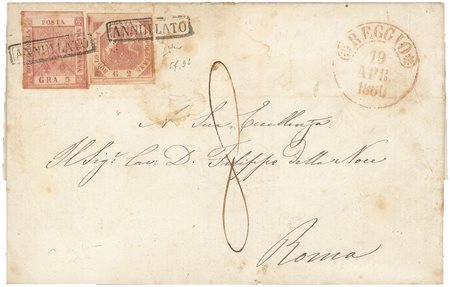 POSTA
GRA 5
ANNULLATO
G. 2
ANNULLATO
REGGIO
19
APR.
1860
A Sua Eccellenza
Il Sigr Cav. D. Filippo della Noce
8
Roma